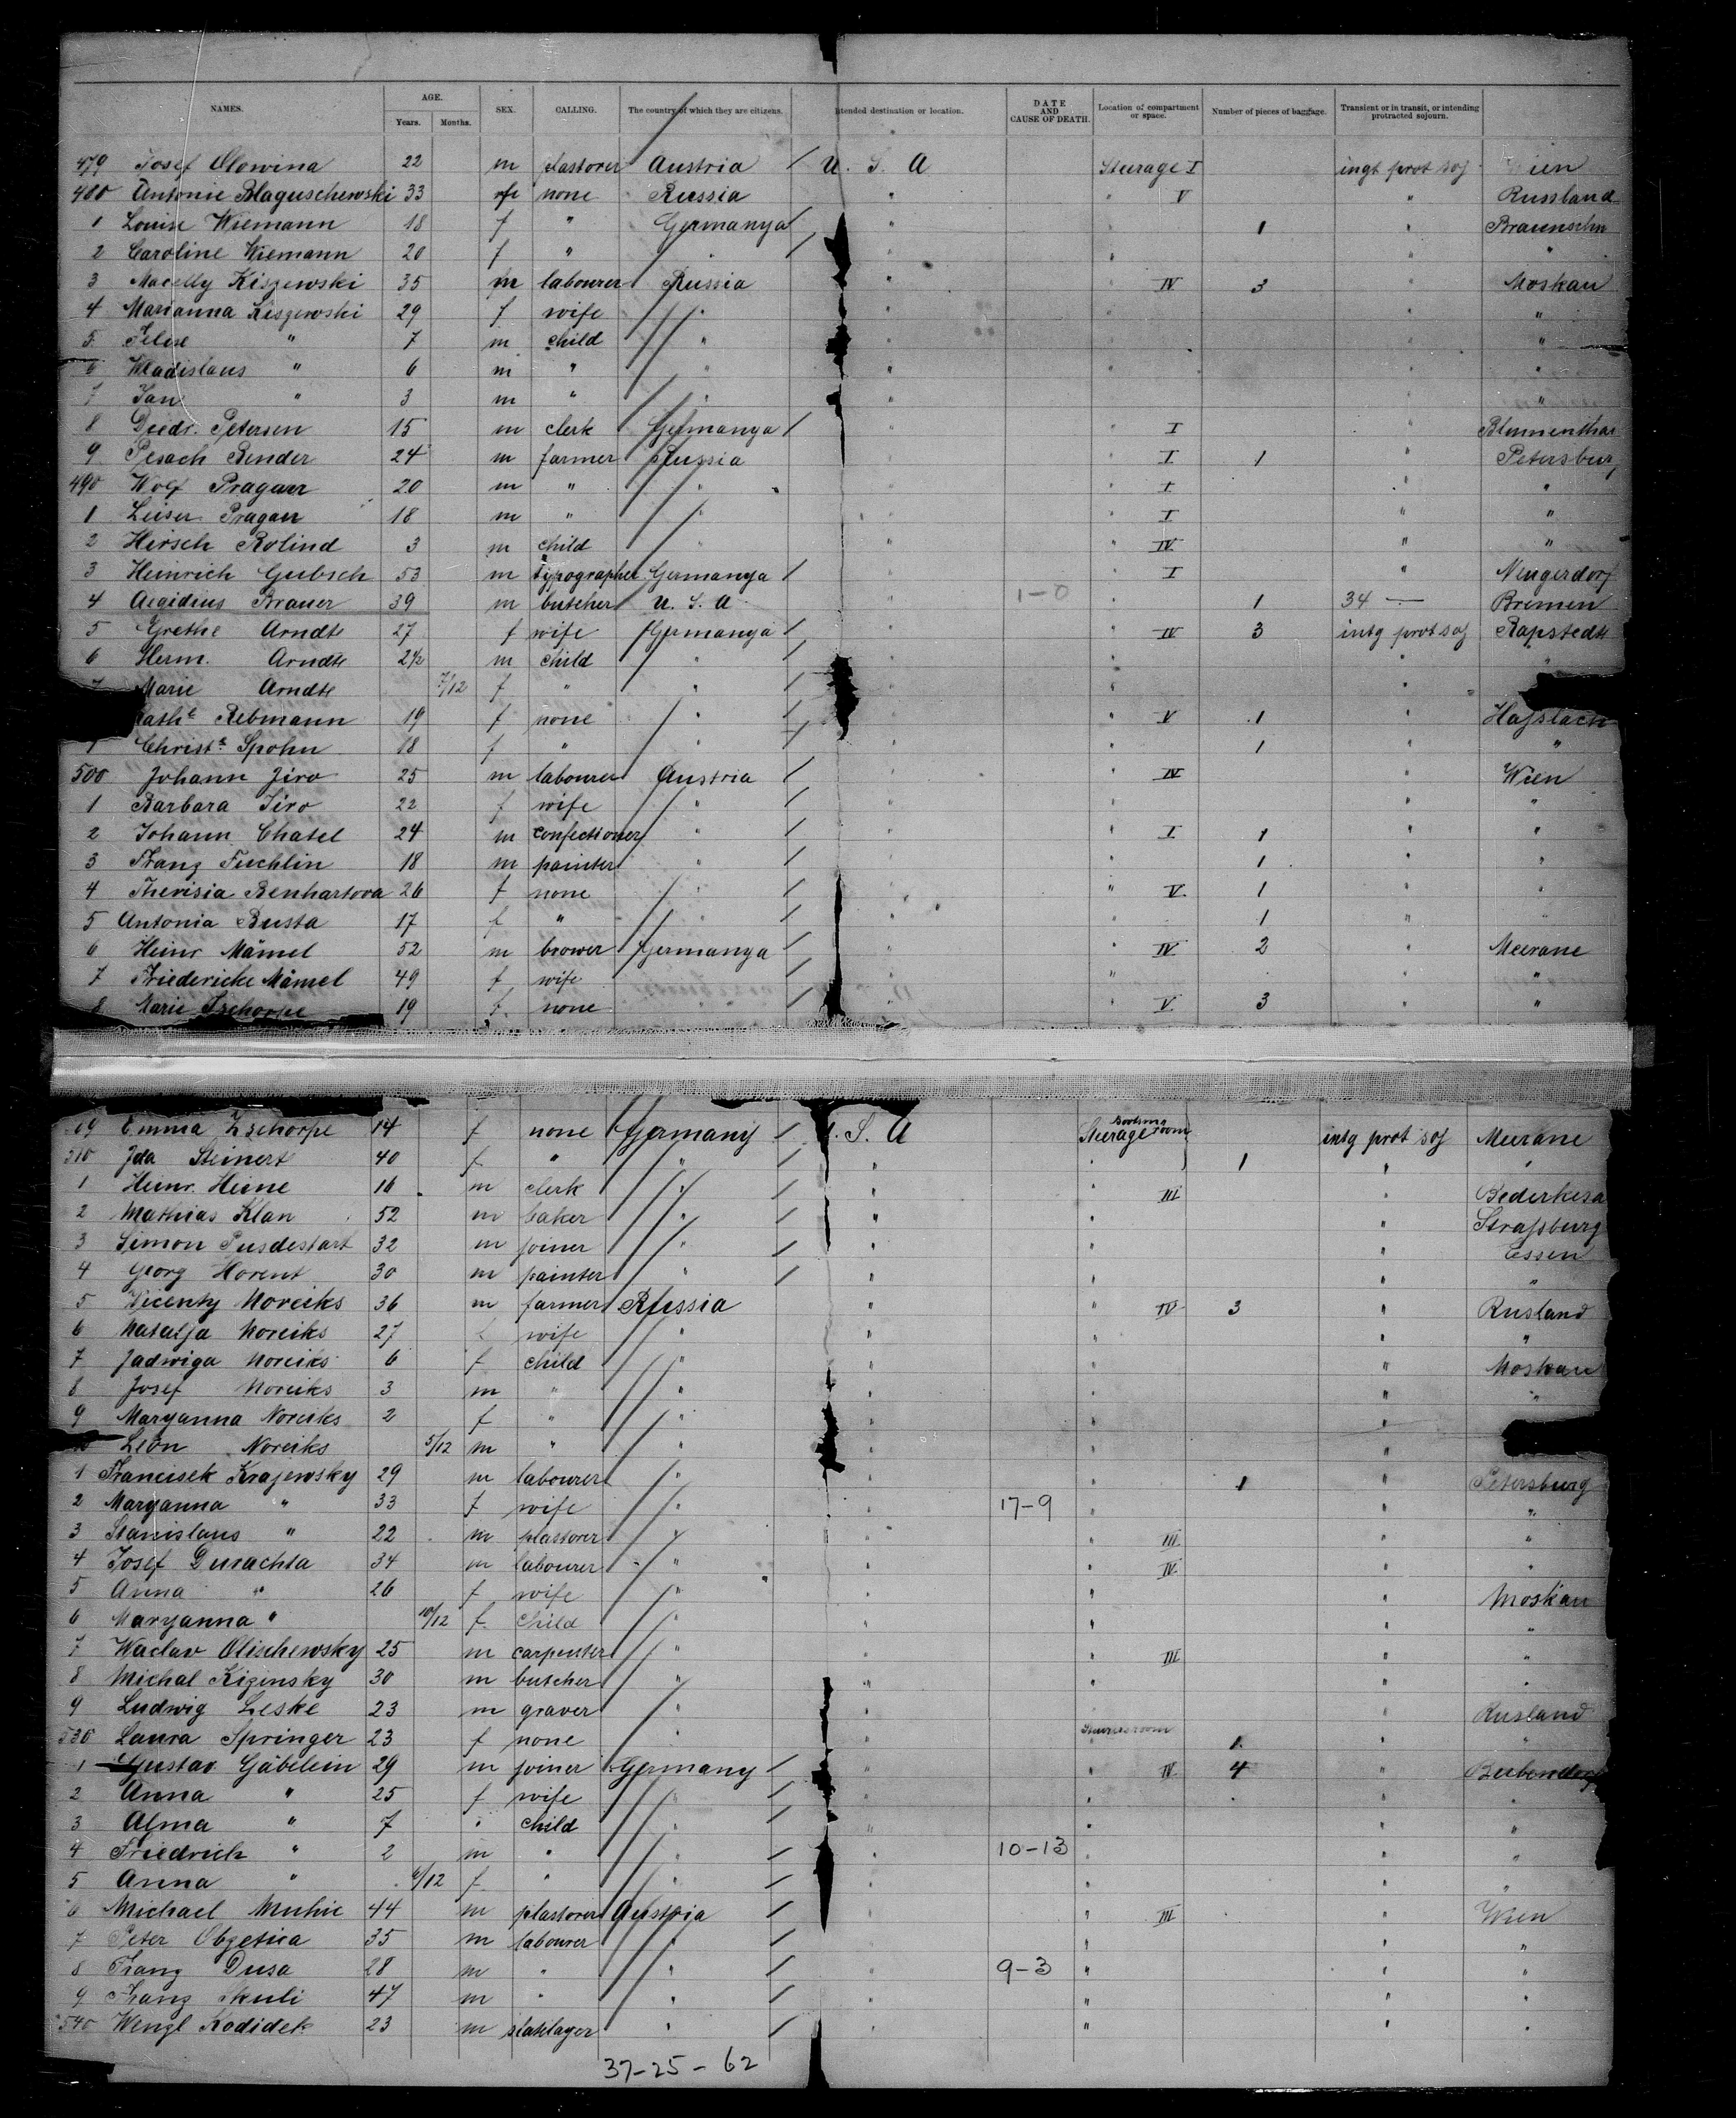 NAMES. AGE. Years. Months. SEX. CALLING. The country of which they are citizens. Intended destination or location. DATE AND CAUSE OF DEATH. Location of compartment or space. Number of pieces of baggage. Transient or in transit, or intending protracted sojourn.
479 Josef Olowina 22 m plastorer Austria / U. S. A Steerage I ingt prot soj Wien
480 Antonie Blaguschewski 33 fe none Russia " " V " Russland
1 Louise Wiemann 18 f " Germanya / " " 1 " Braunschw
2 Caroline Wiemann 20 f " " / " " " "
3 Macelly Kiszewski 35 m labourer Russia " " IV 3 " Moskau
4 Marianna Kiszewski 29 f wife " " " " "
5 " 7 m child " " " " "
6 Wladislaus " 6 m " " " " " "
7 Jan " 3 m " " " " "
8 Diedr. Petersen 15 m clerk Germanya / " " I " Blumenthal
9 Pesach Bender 24 m farmer Russia " " I 1 " Petersburg
490 Wolf Pragarr 20 m " " " " I " "
1 Leiser Pragarr 18 m " " " " I " "
2 Hirsch Rolind 3 m child " " " IV " "
3 Heinrich Gubsch 53 m typographer Germanya / " " I " Neugerdorf
4 Aegidius Brauer 39 m butcher U. S. A " 1-0 " 1 34 — Bremen
5 Grethe Arndt 27 f wife Germanya / " " IV 3 intg prot soj Rapstedt
6 Herm. Arndt 2½ m child " / " " "
7 Marie Arndt 7/12 f " " / " "
Kathe Rebmann 19 f none " / " " V 1 " Hasslach
9 Christe Spohn 18 f " " / " " 1 " "
500 Johann Jiro 25 m labourer Austria / " " IV " Wien
1 Barbara Jiro 22 f wife " / " " " "
2 Johann Chatel 24 m confectioner " / " " I 1 " "
3 Franz Fuchlin 18 m painter " / " " 1 " "
4 Therisia Benhartova 26 f none " / " " V 1 " "
5 Antonia Busta 17 f " " / " " 1 " "
6 Heinr Mämel 52 m brower Germanya / " " IV 2 " Meerane
7 Friedericke Mämel 49 f wife / " " " "
8 Marie Zschorpe 19 f. none " / " " V 3 " "
09 Emma Zschorpe 14 f none Germany / U. S. A Steerage room intg prot soj Meerane
510 Jda Steinert 40 f " " / " " 1 " "
1 Heinr. Heine 16 m clerk " / " " III " Bederkesa
2 Mathias Klan 52 m baker " / " " " Strassburg
3 Simon Pusdestart 32 m joiner " / " " " Essen
4 Georg Horent 30 m painter " / " " " "
5 Vicenty Noreiks 36 m farmer Russia " " IV 3 " Rusland
6 Natalja Noreiks 27 f wife " " " " "
7 Jadwiga Noreiks 6 f child " " " " Moskau
8 Josef Noreiks 3 m " " " " " "
9 Maryanna Noreiks 2 f " " " " "
Leon Noreiks 5/12 m " " " " "
1 Francisek Krajewsky 29 m labourer " " " 1 " Petersburg
2 Maryanna " 33 f wife " " 17-9 " " "
3 Stanislaus " 22 m plastorer " " " III " "
4 Josef Durachta 34 m labourer " " " IV " "
5 Anna " 26 f wife " " " " Moskau
6 Maryanna " 10/12 f. Child " " " " "
7 Waclav Olischewsky 25 m carpenter " " " III " "
8 Michal Kizinsky 30 m butcher " " " " "
9 Ludwig Leske 23 m graver " " " " Rusland
530 Laura Springer 23 f none " " 1 " "
1 Gustav Gäbelein 29 m joiner Germany / " " IV 4 " Beubendorf
2 Anna " 25 f wife " / " " " "
3 Alma " 7 " child " / " " " "
4 Friedrich " 2 m " " / " 10-13 " " "
5 Anna " 6/12 f " " / " " " "
6 Michael Muhic 44 m plastorer Austria / " " III " Wien
7 Peter Obgetica 35 m labourer " / " " " "
8 Franz Dusa 28 m " " / " 9-3 " " "
9 Franz Skuli 47 m " " / " " " "
540 Wenzl Kodidek 23 m slatelayer " / " " " "
37-25-62